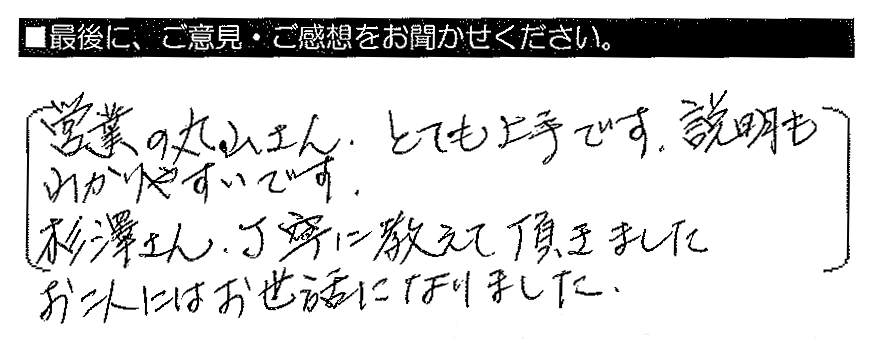 ■最後に、ご意見・ご感想をお聞かせください。
営業の丸山さん.とても上手です.説明も
わかりやすいです.
杉澤さん.丁寧に教えて頂きました
お二人にはお世話になりました.